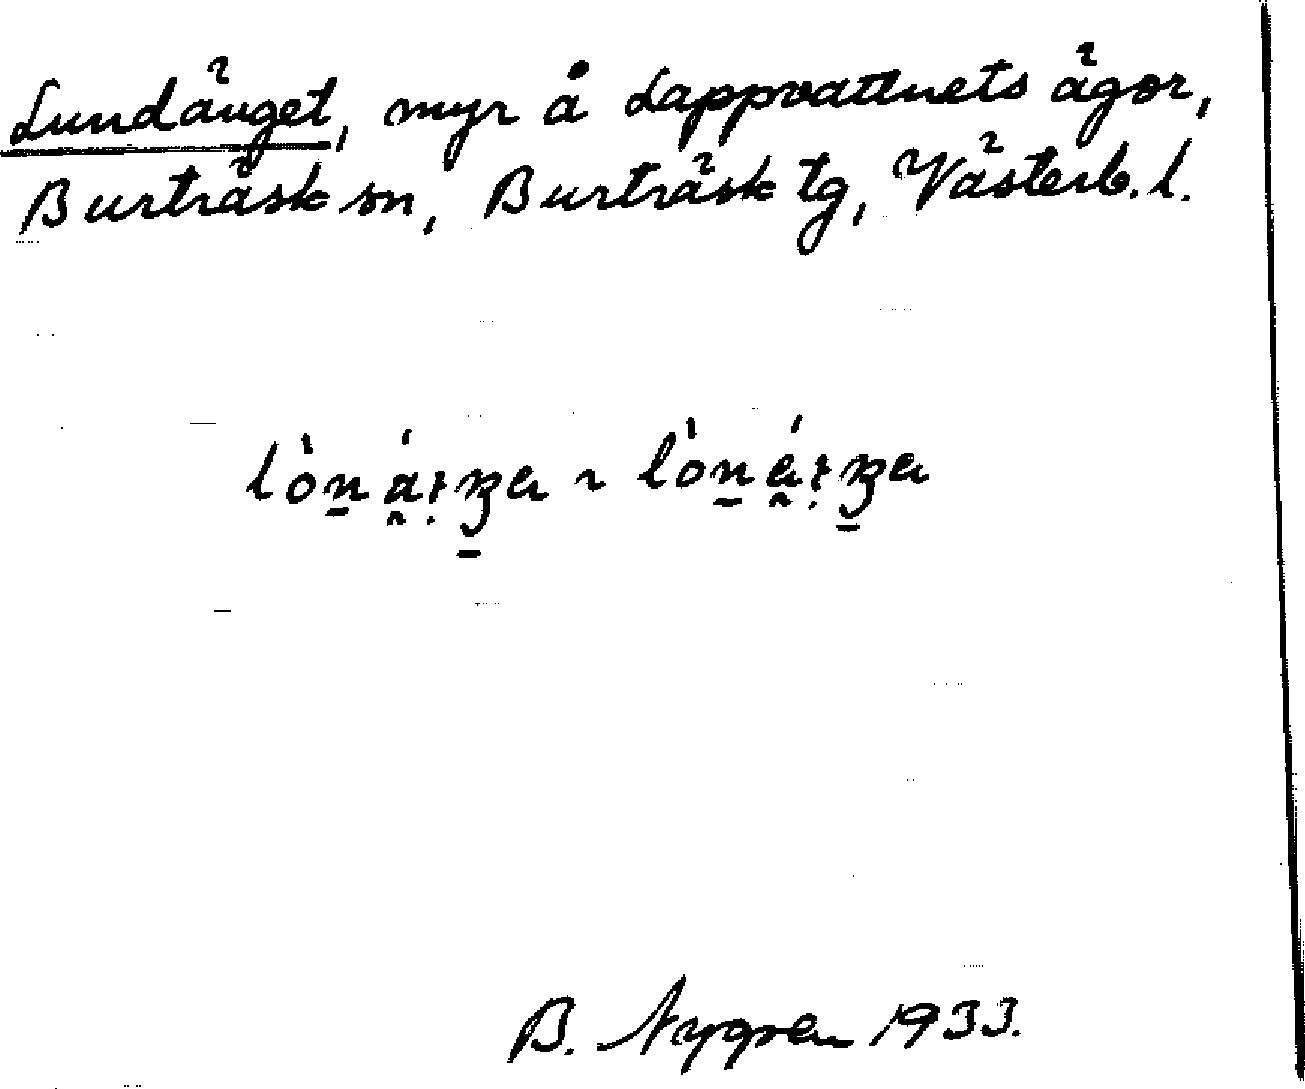 Lundänget, myr å Lappvattnets ägor,
Burträsk sn, Burträsk tg, Västerb. l.
B. Nygren 1933.